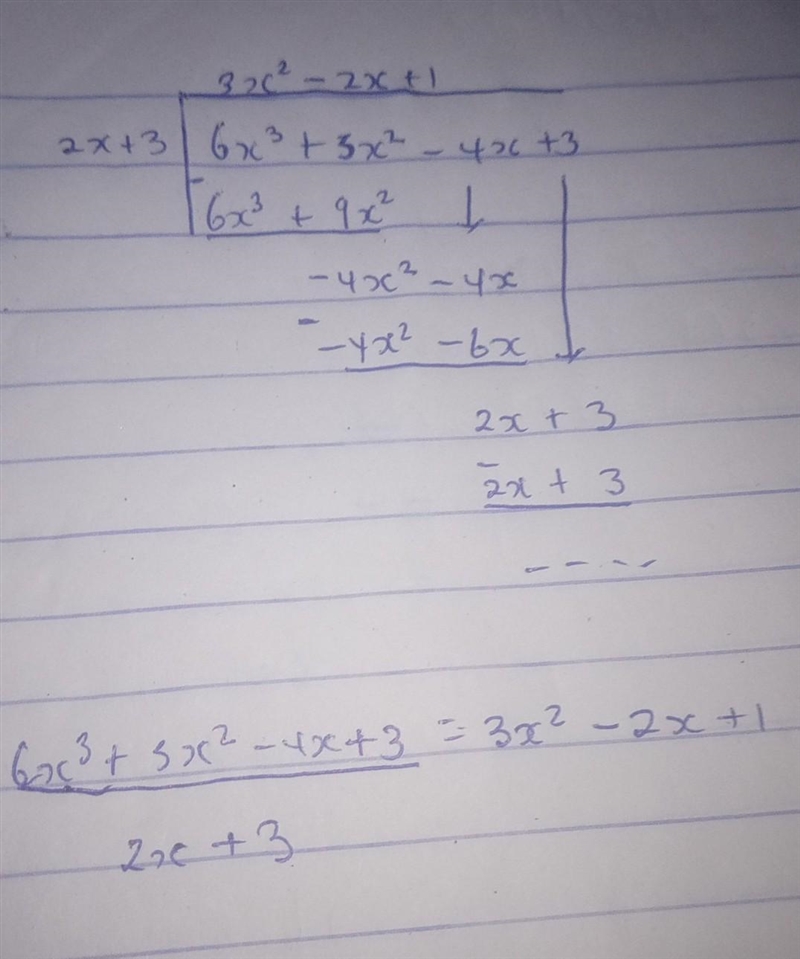 3x² - 2x + 1
2x + 3 6x³ + 5x² - 4x + 3
- 6x³ + 9x² ↓
-4x² - 4x
- -4x² - 6x ↓
2x + 3
- 2x + 3
- - - -
6x³ + 5x² - 4x + 3 = 3x² - 2x + 1
2x + 3